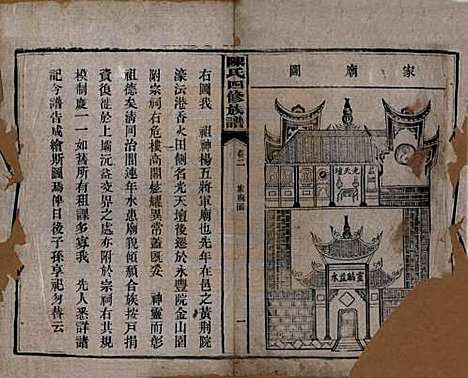 家廟圖
光天壇
陳氏四修族譜
卷二
家廟圖
一
右圖我　祖神楊五將軍廟也先年在邑之黃荆院
濠沄港香火田側名光天壇後遷於永豐院金山園
附宗祠右危樓高閣修耀異常蓋既妥　神靈而彰
祖德矣清同治間連年水患廟貌傾頹合族按戶捐
資復修於上壩沅益交界之處亦附於宗祠右其規
模制度一一如舊所有租課多寡我　先人悉詳譜
記今譜告成繪斯圖焉俾日後子孫享祀勿替云